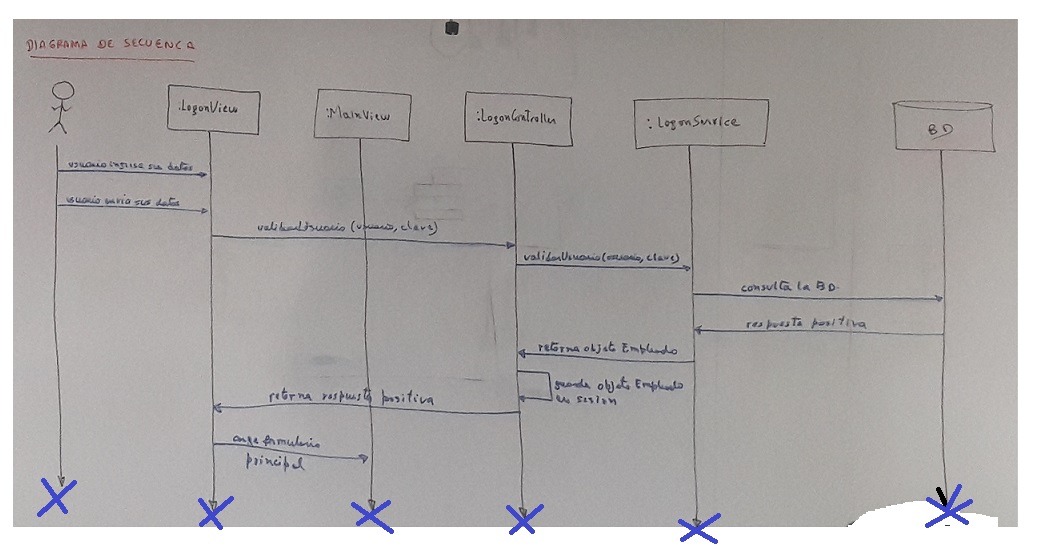 DIAGRAMA DE SECUENCA
:LogonView
:MainView
:LogonController
:LogonService
BD
usuario ingresa sus datos
usuario envia sus datos
validarUsuario (usuario, clave)
validarUsuario (usuario, clave)
consulta la BD.
respuesta positiva
retorna objeto Empleado
guarda objeto Empleado
en sesion
retorna respuesta positiva
carga formulario
principal